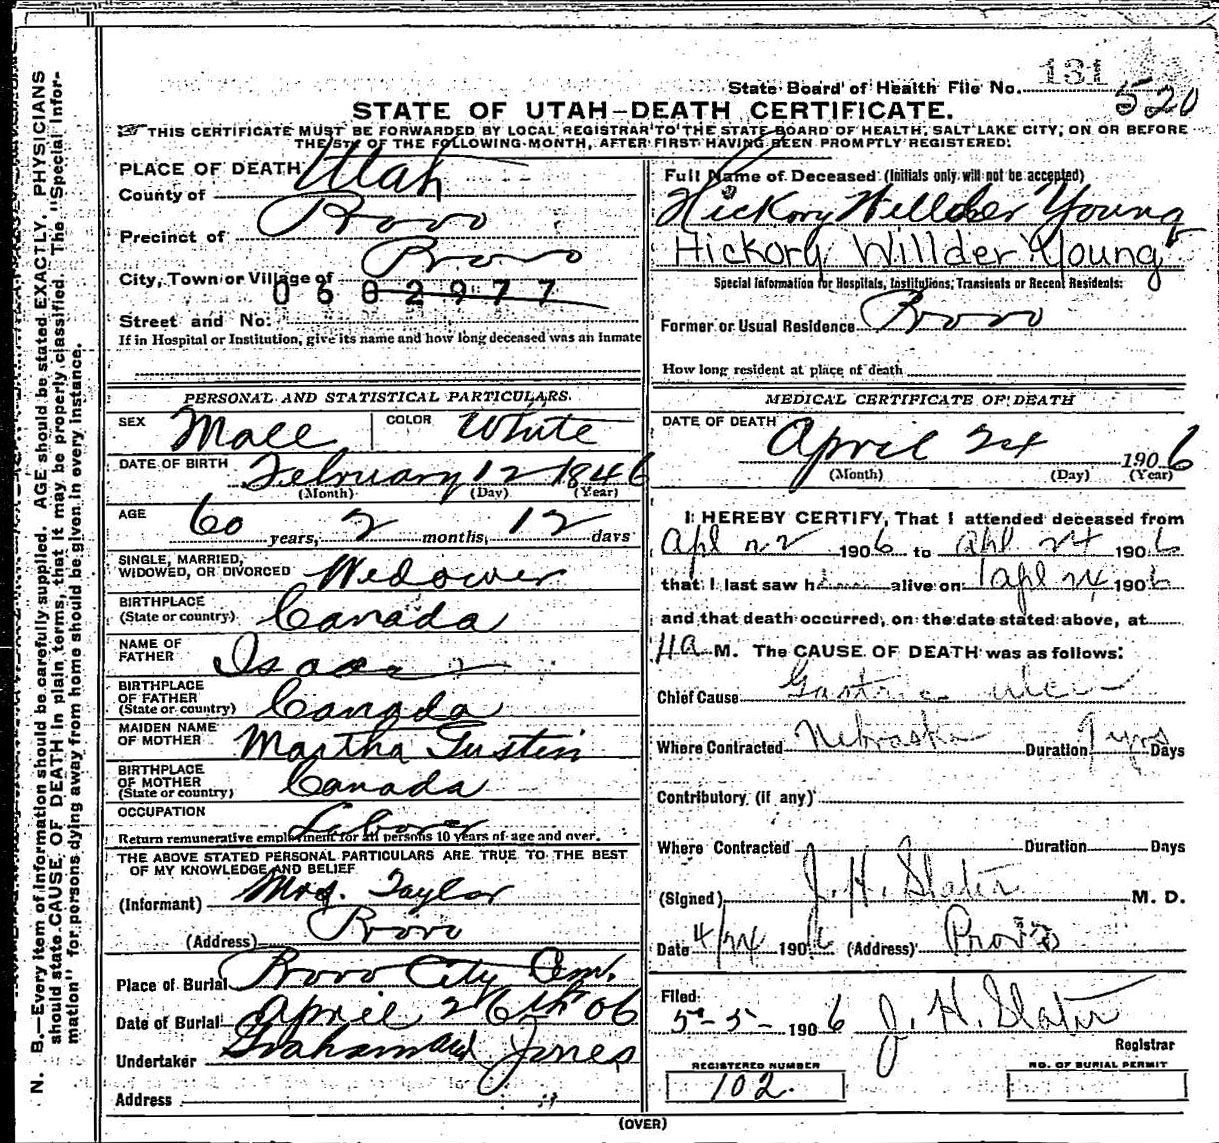 State Board of Health File No. 131
520
STATE OF UTAH—DEATH CERTIFICATE.
THIS CERTIFICATE MUST BE FORWARDED BY LOCAL REGISTRAR TO THE STATE BOARD OF HEALTH, SALT LAKE CITY, ON OR BEFORE
THE 5TH OF THE FOLLOWING MONTH, AFTER FIRST HAVING BEEN PROMPTLY REGISTERED.
PLACE OF DEATH
County of Utah
Precinct of Provo
City, Town or Village of Provo
0602977
Street and No.
If in Hospital or Institution, give its name and how long deceased was an Inmate
Full Name of Deceased (Initials only will not be accepted)
Hickory Willder Young
Hickory Willder Young
Special Information for Hospitals, Institutions, Transients or Recent Residents:
Former or Usual Residence Provo
How long resident at place of death
PERSONAL AND STATISTICAL PARTICULARS.
SEX Male COLOR White
DATE OF BIRTH February 12 1846
(Month) (Day) (Year)
AGE 60 years, 2 months, 12 days
SINGLE, MARRIED,
WIDOWED, OR DIVORCED Widower
BIRTHPLACE
(State or country) Canada
NAME OF
FATHER Isaac
BIRTHPLACE
OF FATHER
(State or country) Canada
MAIDEN NAME
OF MOTHER Martha Tustin
BIRTHPLACE
OF MOTHER
(State or country) Canada
OCCUPATION Labor
Return remunerative employment for all persons 10 years of age and over.
THE ABOVE STATED PERSONAL PARTICULARS ARE TRUE TO THE BEST
OF MY KNOWLEDGE AND BELIEF
(Informant) Mrs. Taylor
(Address) Provo
Place of Burial Provo City Cem.
Date of Burial April 26th 06
Undertaker Graham and Jones
Address
MEDICAL CERTIFICATE OF DEATH
DATE OF DEATH April 24 1906
(Month) (Day) (Year)
I HEREBY CERTIFY, That I attended deceased from
Apl 22 1906 to apl 24 1906
that I last saw h alive on apl 24 1906
and that death occurred, on the date stated above, at
11 a M. The CAUSE OF DEATH was as follows:
Chief Cause Gastric ulcer
Where Contracted Nebraska Duration yrs Days
Contributory (if any)
Where Contracted Duration Days
(Signed) J. H. Slater M. D.
Date 4/24 1906 (Address) Provo
Filed
5-5- 1906 J. H. Slater
Registrar
REGISTERED NUMBER
102.
NO. OF BURIAL PERMIT
(OVER)
N. B.—Every item of information should be carefully supplied. AGE should be stated EXACTLY. PHYSICIANS
should state CAUSE OF DEATH in plain terms, that it may be properly classified. The "Special Infor-
mation" for persons dying away from home should be given in every instance.